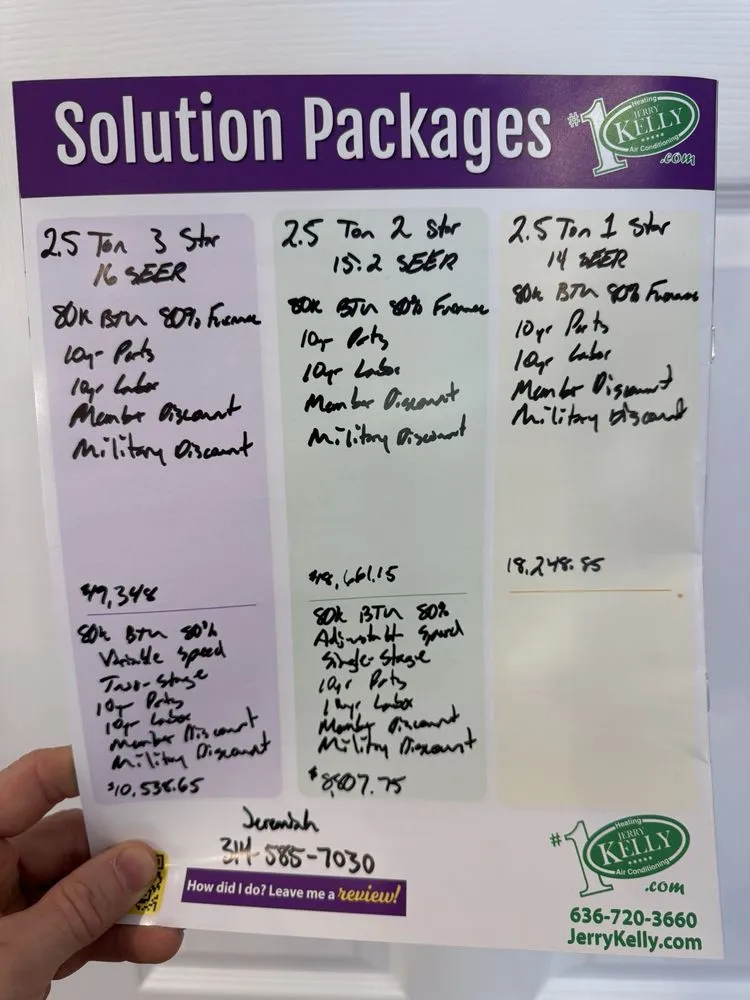 Solution Packages
#1 Heating
JERRY
KELLY
Air Conditioning
.com
2.5 Ton 3 Star
16 SEER
80K BTU 80% Furnace
10yr Parts
10yr Labor
Member Discount
Military Discount
$19,348
80k BTU 80%
Variable Speed
Two-Stage
10yr Parts
10yr Labor
Member Discount
Military Discount
$10,538.65
2.5 Ton 2 Star
15.2 SEER
80K BTU 80% Furnace
10yr Parts
10yr Labor
Member Discount
Military Discount
$18,661.15
80K BTU 80%
Adjustable Speed
Single-Stage
10yr Parts
10yr Labor
Member Discount
Military Discount
$8807.75
2.5 Ton 1 Star
14 SEER
80K BTU 80% Furnace
10yr Parts
10yr Labor
Member Discount
Military Discount
18,248.85
Jeremiah
314-585-7030
How did I do? Leave me a review!
#1 Heating
JERRY
KELLY
Air Conditioning
.com
636-720-3660
JerryKelly.com